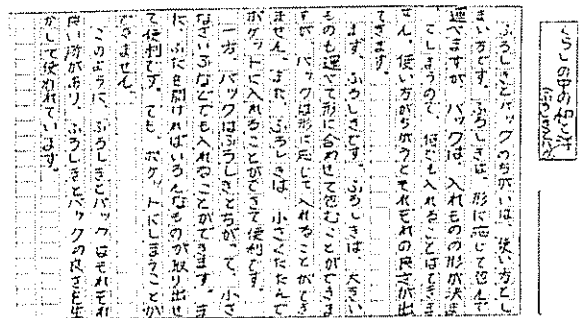 くらしの中の和と洋
ふろしきとバッグのちがいは、使い方とし
まい方です。ふろしきは、形に応じて包んで
運べますが、バッグは、入れものの形が決ま
てしまうので、何でも入れることはできま
せん。使い方がちがうとそれぞれの良さが出
てきます。
まず、ふろしきです。ふろしきは、大きい
ものも運べて形に合わせて包むことができま
すが、バッグは形に応じて入れることができ
ません。また、ふろしきは、小さくたたんで
ポケットに入れることができて便利です。
一方、バッグはふろしきとちがって、小さ
なさいふなどでも入れることができます。ま
た、ふたを開ければいろんなものが取り出せ
て便利です。でも、ポケットにしまうことが
できません。
このように、ふろしきとバッグはそれぞれ
良い所があり、ふろしきとバッグの良さを生
かして使われています。